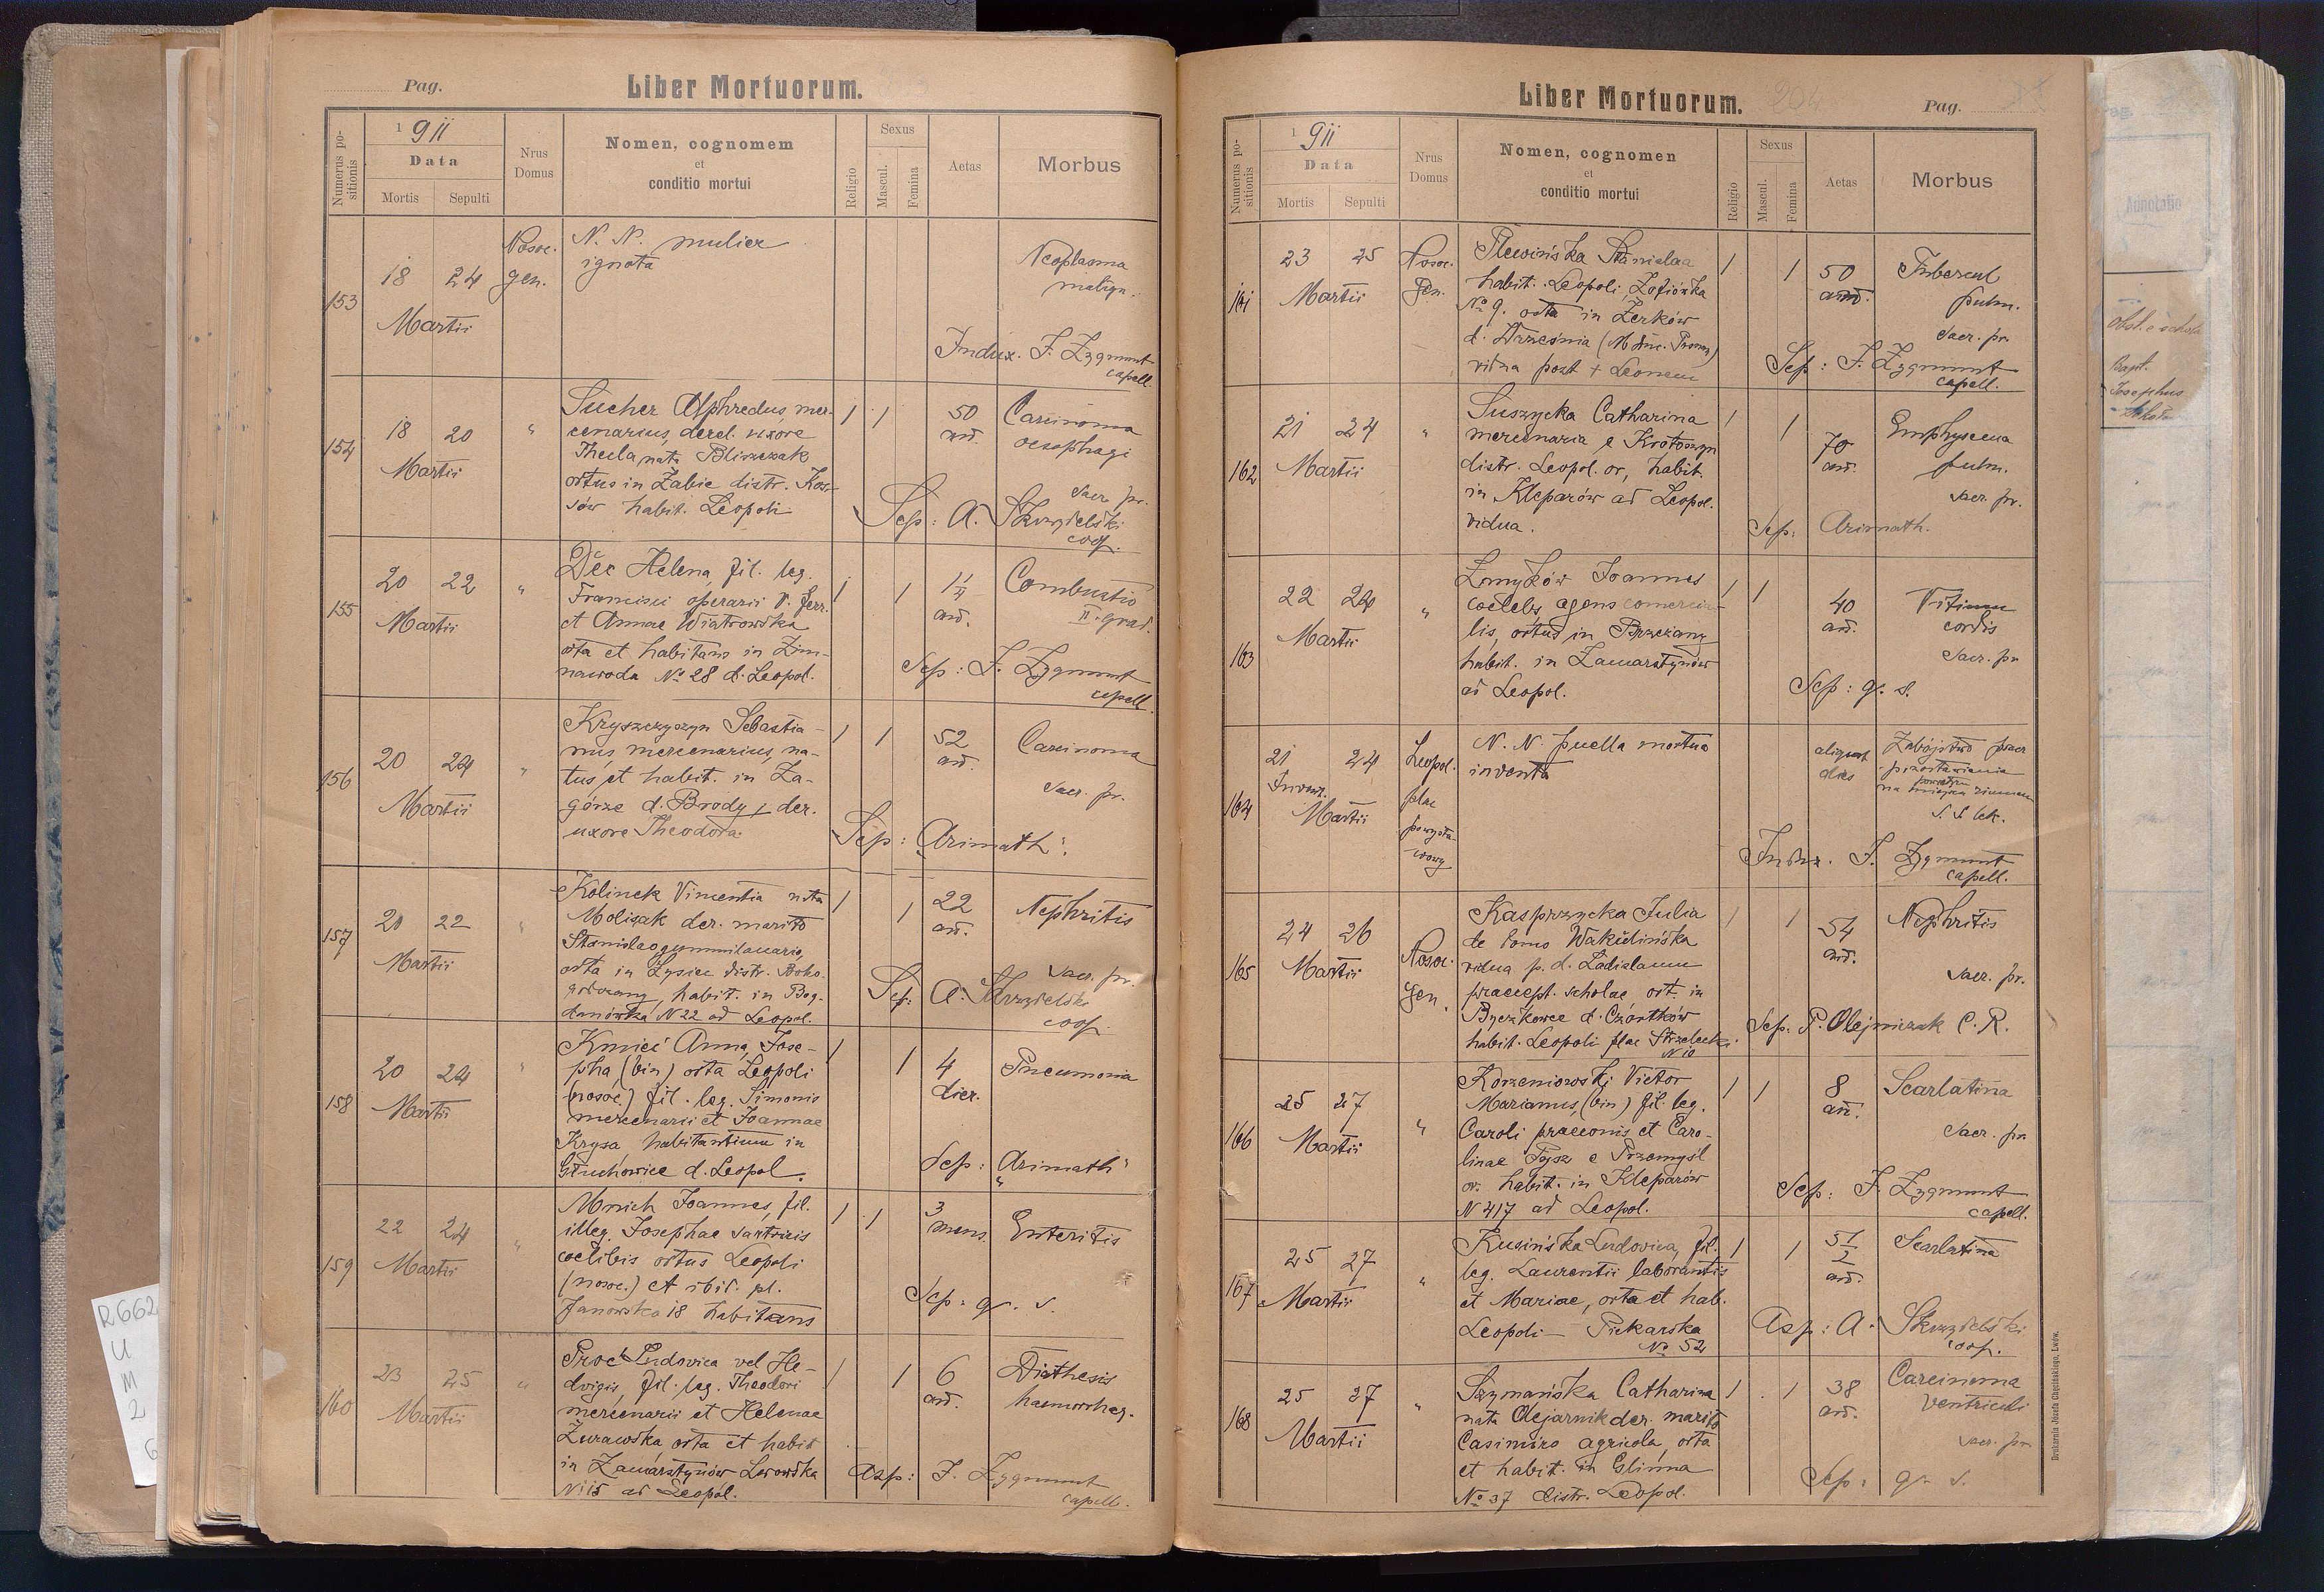 Pag.
Liber Mortuorum.
Numerus positionis
1911
Data
Mortis Sepulti
Nrus Domus
Nomen, cognomem
et
conditio mortui
Religio
Sexus
Mascul.
Femina
Aetas
Morbus
153
18 24
Martii
Nosoc.
gen.
N. N. mulier
ignota
Neoplasma
malign.
Indux. F. Zygmunt
capell.
154
18 20
Martii
"
Sucher Alphredus mer-
cenarius, derel. uxore
Thecla nata Bliszczak
ortus in Żabie distr. Kos-
sów habit. Leopoli
1 1
50
an.
Carcinoma
oesophagi
Sacr. pr.
Sep: A. Skrzydelski
coop.
155
20 22
Martii
"
Dec Helena, fil. leg.
Francisci operarii v. ferr.
et Annae Wiatrowska
orta et habitans in Zim-
nawoda No 28 d. Leopol.
1 1
1 1/4
an.
Combustio
II. grad.
Sep: F. Zygmunt
capell.
156
20 24
Martii
"
Kryszczyszyn Sebastia-
nus, mercenarius, na-
tus et habit. in Za-
górze d. Brody, der.
uxore Theodora.
1 1
52
an.
Carcinoma
Sacr. pr.
Sep: Arimath.
157
20 22
Martii
"
Kolinek Vincentia nata
Molisak der. marito
Stanislao
orta in Łysiec distr. Boho-
rodczany, habit. in Bog-
danówka N 22 ad Leopol.
1 1
22
an.
Nephritis
Sacr. pr.
Sep: A. Skrzydelski
coop.
158
20 24
Martii
"
Kmieć Anna, Jose-
pha (bin) orta Leopoli
(nosoc.) fil. leg. Simonis
mercenarii et Joannae
Krysa, habitantium in
Głuchowice d. Leopol.
1 1
4
dier.
Pneumonia
Sep: Arimath.
159
22 24
Martii
"
Mnich Joannes, fil.
illeg. Josephae sartricis
coelibis ortus Leopoli
(nosoc.) et ibid. pl.
Janowska 18 habitans
1 1
3
mens.
Enteritis
Sep: gr. s.
160
23 25
Martii
"
Proć Ludovica vel He-
dvigis, fil. leg. Theodori
mercenarii et Helenae
Żurawska, orta et habit
in Zamarstynów Lwowska
N 115 ad Leopol.
1 1
6
an.
Diathesis
haemorrhag.
Asp: F. Zygmunt
capell.
Liber Mortuorum.
204
Pag.
Numerus positionis
1911
Data
Mortis Sepulti
Nrus Domus
Nomen, cognomen
et
conditio mortui
Religio
Sexus
Mascul.
Femina
Aetas
Morbus
161
23 25
Martii
Nosoc.
Gen.
Plewińska Stanislaa
habit. Leopoli, Zofiówka
No 9. orta in Żerków
d. Września
vidua post + Leonem
1 1
50
an.
Tubercul
pulm.
Sacr. pr.
Sep: F. Zygmunt
capell.
162
21 24
Martii
"
Suszycka Catharina
mercenaria e Krotoszyn
distr. Leopol. or, habit.
in Kleparów ad Leopol.
vidua.
1 1
70
an.
Emphysema
pulm.
Sacr. pr.
Sep: Arimath.
163
22 24
Martii
"
Żmyków Joannes
coelebs, agens comercia-
lis, ortus in Brzeżany
habit. in Zamarstynów
ad Leopol.
1 1
40
an.
Vitium
cordis
Sacr. pr.
Sep: gr. s.
164
21 24
Invent.
Martii
Leopol.
plac
powysta-
wowy
N. N. puella mortua
inventa
aliquot
dies
Zabójstwo przez
pozostawienie
na zimnem
powietrzu
Indux. F. Zygmunt
capell.
165
24 26
Martii
Nosoc.
gen.
Kasprzycka Julia
de domo Wakulińska
vidua p. d. Ladislaum
praecept. scholae, ort. in
Byczkowce d. Czortków
habit. Leopoli plac Strzelecki
N 10
1 1
54
an.
Nephritis
Sacr. pr.
Sep: P. Olejniczak C. R.
166
25 27
Martii
"
Korzeniowski Victor
Marianus, (bin) fil. leg.
Caroli praeconis et Caro-
linae Tysz e Przemyśl
or. habit. in Kleparów
N 417 ad Leopol.
1 1
8
an.
Scarlatina
Sacr. pr.
Sep: F. Zygmunt
capell.
167
25 27
Martii
"
Kusińska Ludovica, fil.
leg. Laurentii laborantis
et Mariae, orta et hab.
Leopoli — Piekarska
No 52
1 1
5 1/2
an.
Scarlatina
Asp: A. Skrzydelski
coop.
168
25 27
Martii
"
Szymańska Catharina
nata Olejarnik der. marito
Casimiro agricola, orta
et habit. in Glinna
No 37 distr. Leopol.
1 1
38
an.
Carcinoma
ventriculi
Sacr. pr.
Sep: gr. s.
Drukarnia Józefa Chęcińskiego, Lwów.
Adnotatio
Bapt.
Josephus
R662
U
M
2
6